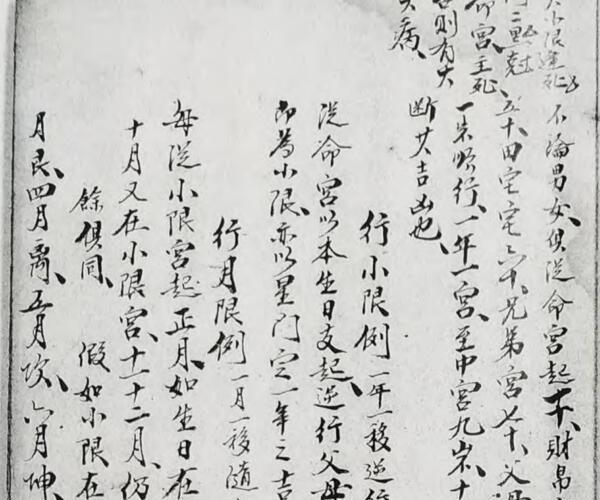 小限逢死
二黑尅
命宮主死
則有大
病
不論男女俱從命宮起一十財帛
五十田宅宅六十兄弟宮七十父
一歲順行一年一宮至中宮九歲十
斷其吉凶也
行小限例 一年一移逆行
從命宮以本生日支起逆行父母
即為小限亦以星門定一年之吉
行月限例 一月一移隨
每從小限宮起正月如生日在
十月又在小限宮十一十二月仍
餘俱同 假如小限在
月艮四月离五月坎六月坤